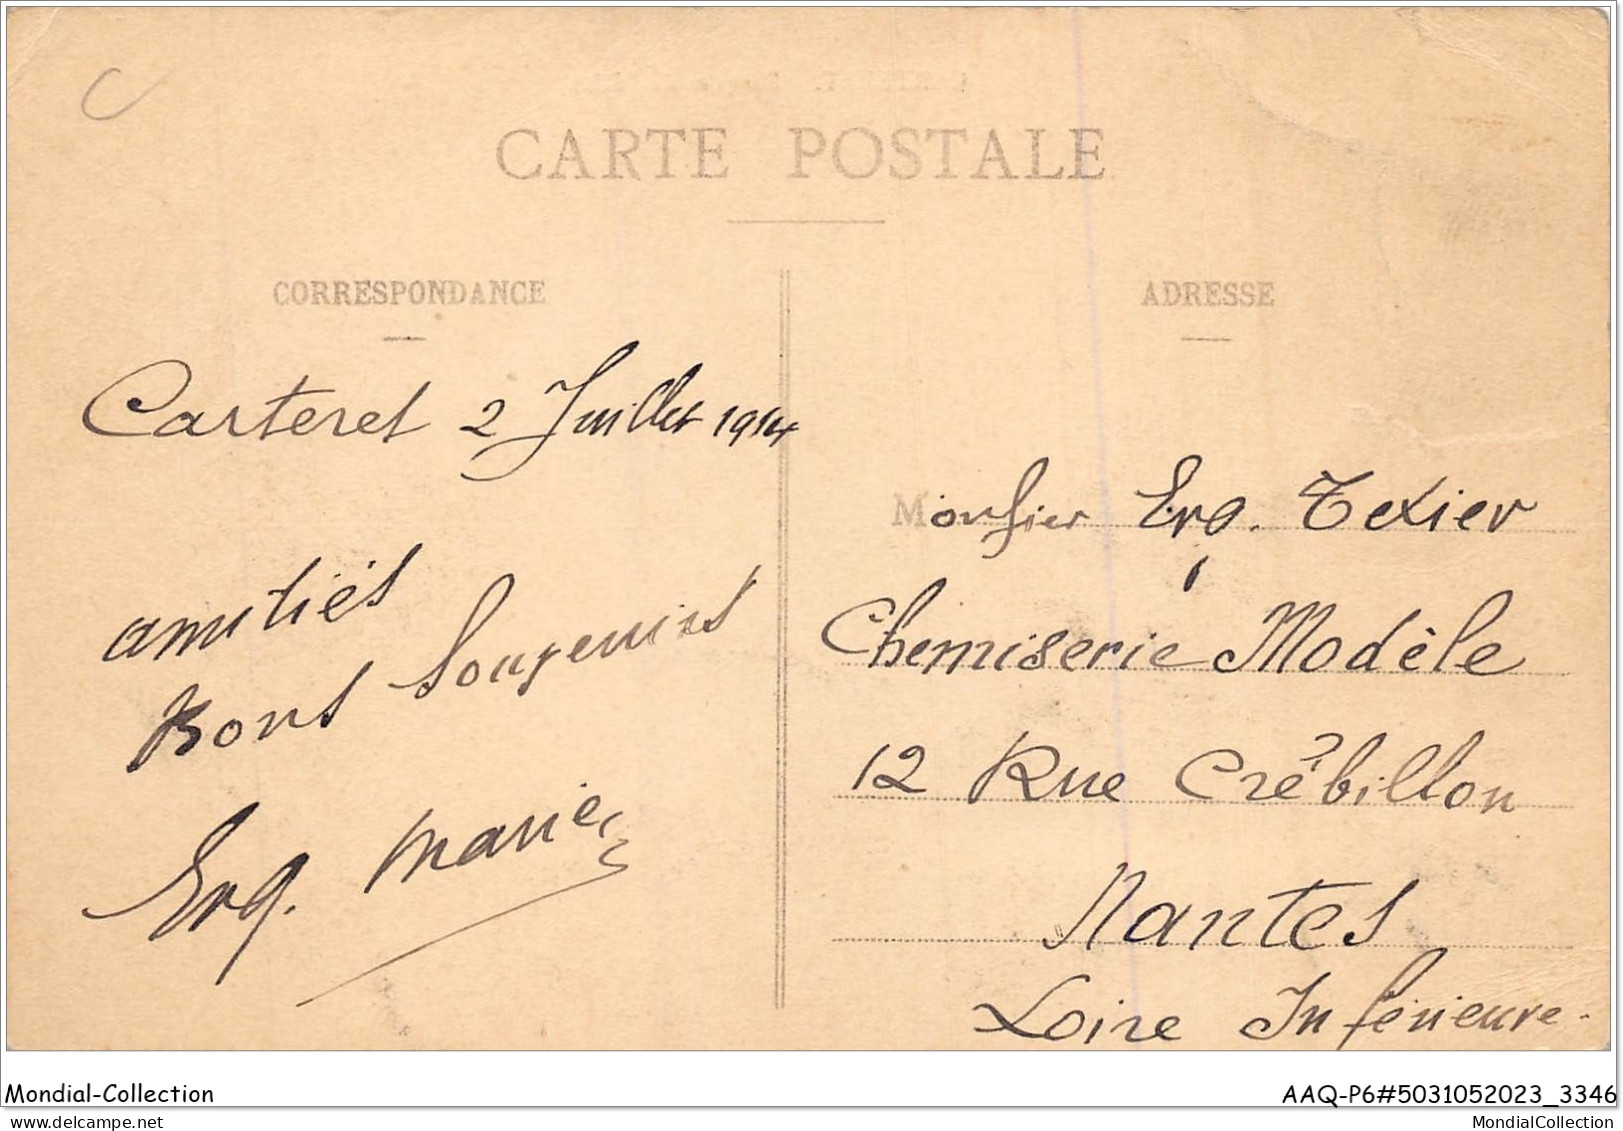 CARTE POSTALE
CORRESPONDANCE
Carteret 2 Juillet 1914
amitiés
Bons Souvenirs
Erg. Marie
ADRESSE
Monsieur Erg. Texier
Chemiserie Modèle
12 Rue Crébillon
Nantes
Loire Inférieure.
Mondial-Collection
AAQ-P6#5031052023_3346
www.delcampe.net
MondialCollection